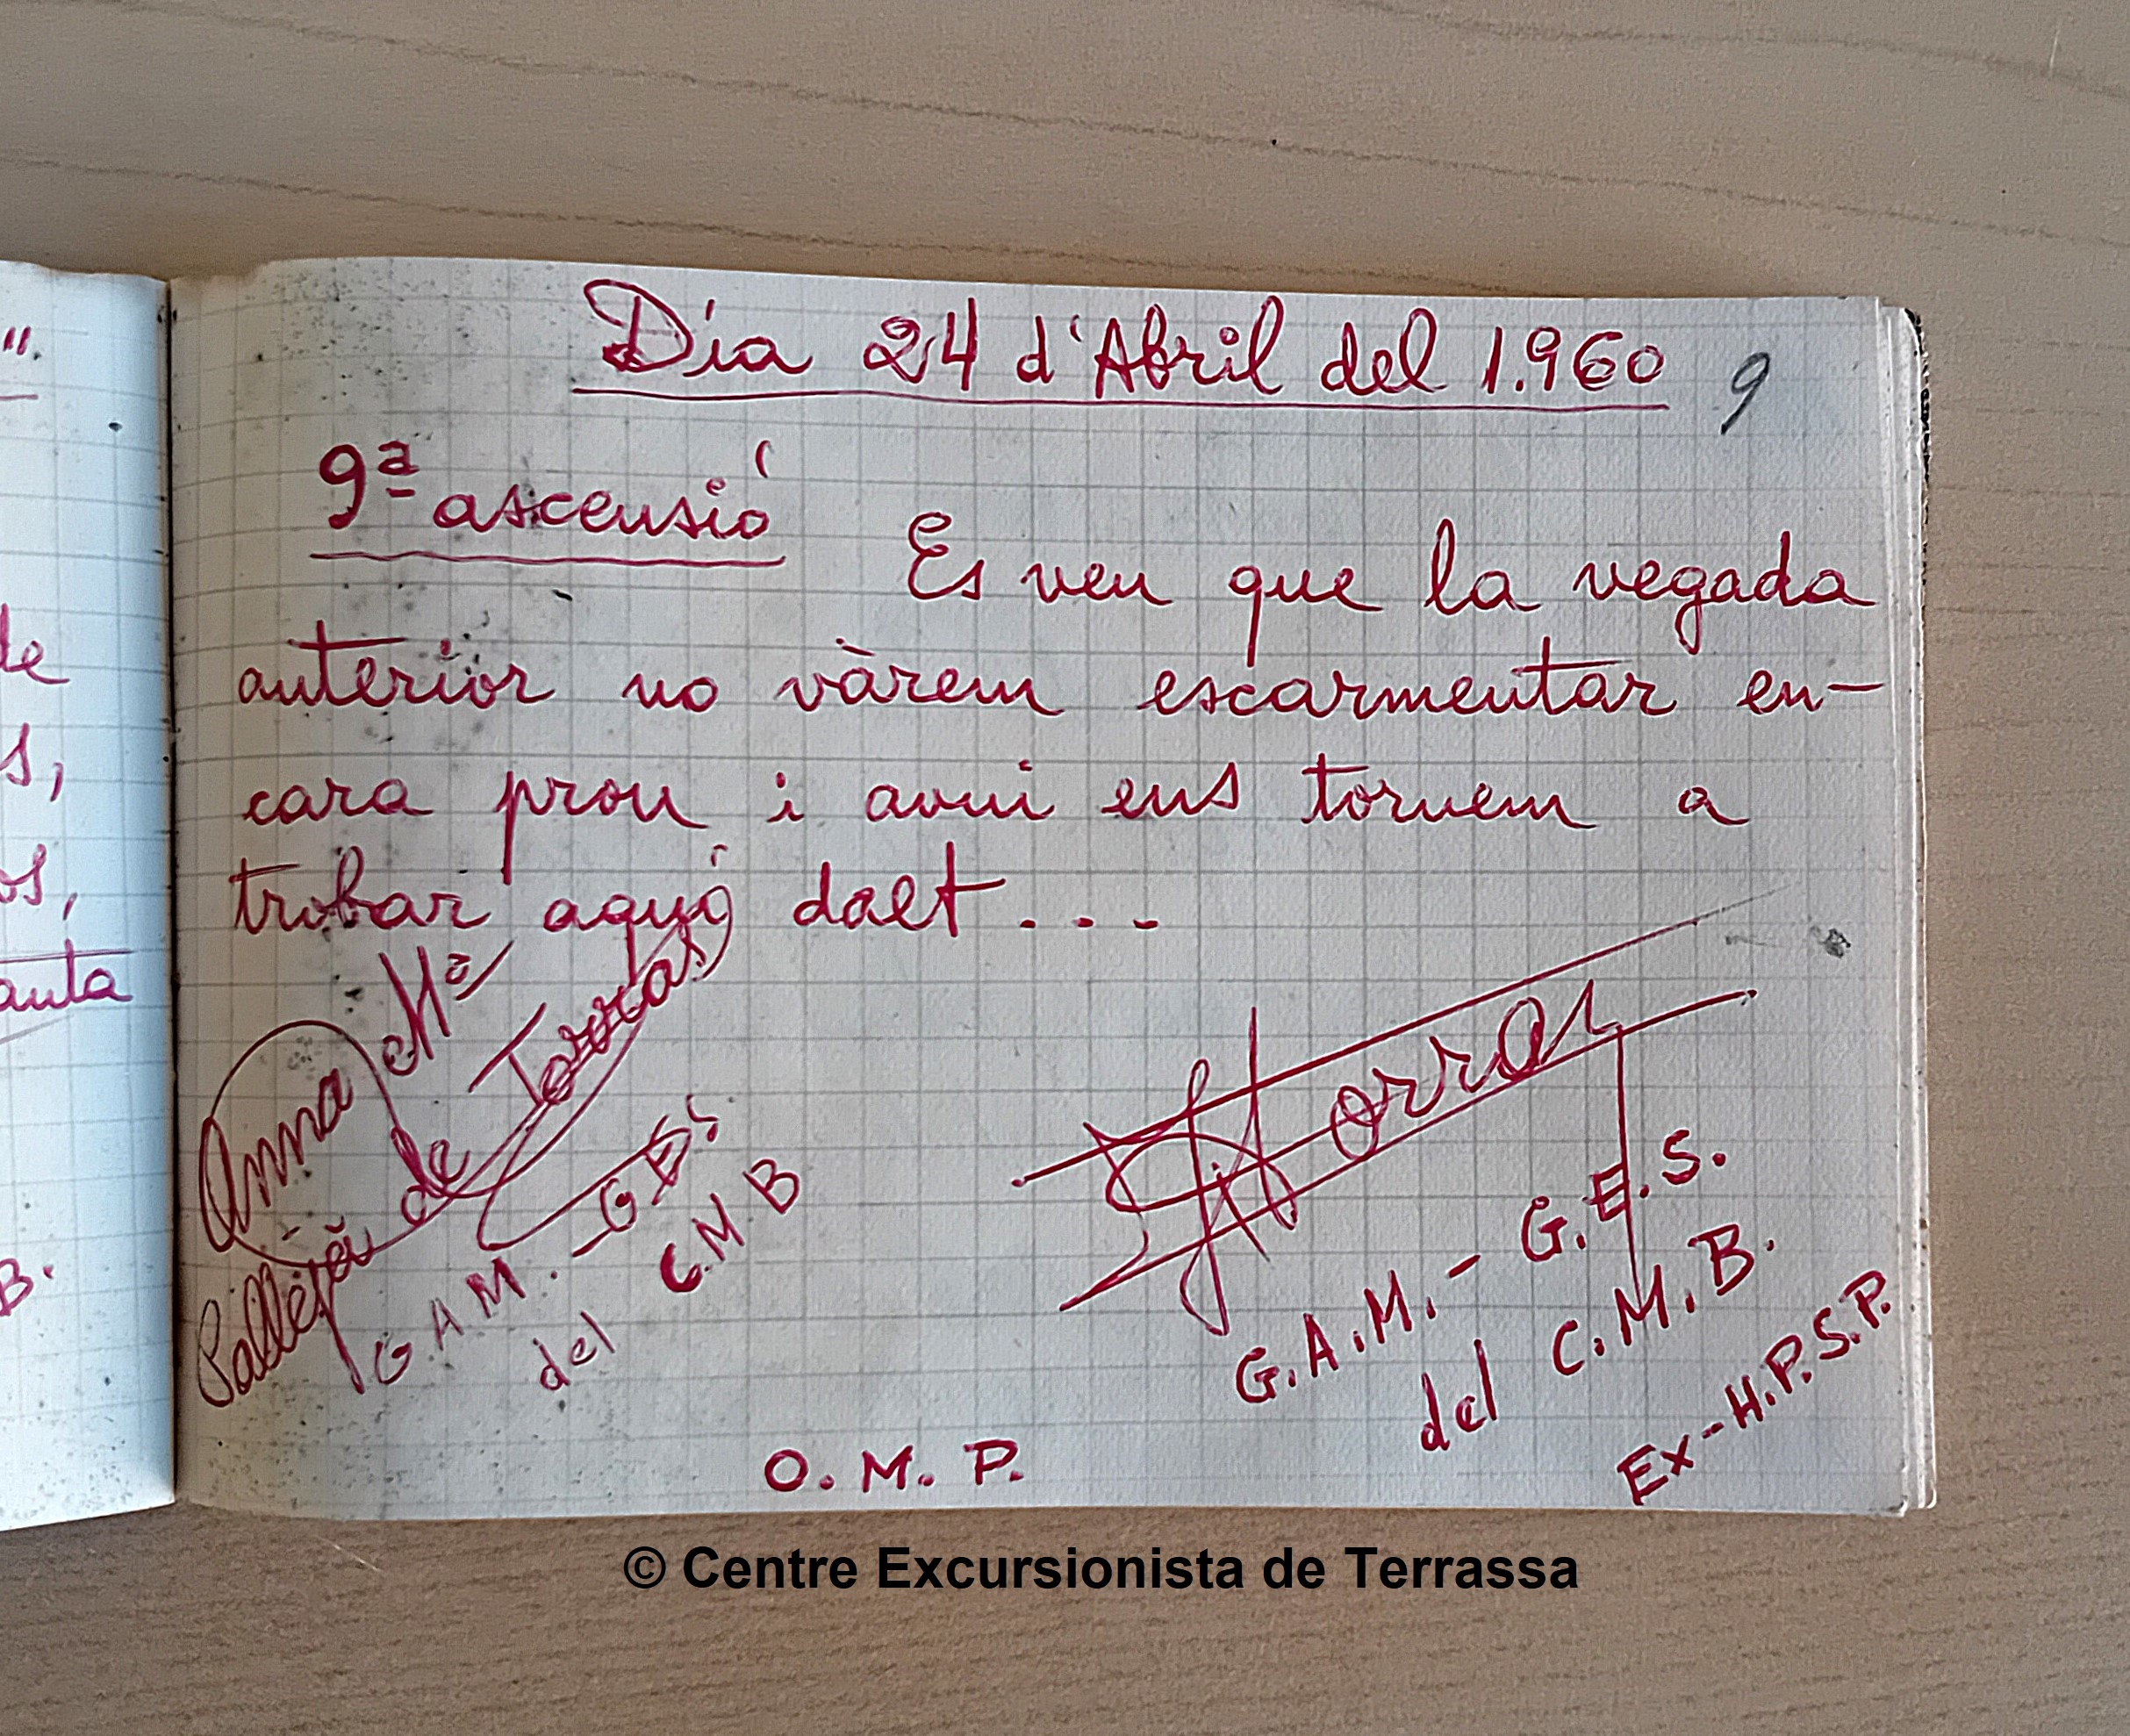 ".
de
s,
os,
anta
B.
Día 24 d'Abril del 1.960
9
9ª ascensió
Es veu que la vegada
anterior no vàrem escarmentar en-
cara prou i avui ens tornem a
trobar aquí dalt...
Anna Mª
Pallejà de Torras
G A M. - G E S
del C. M B
Torras
G.A.M. - G.E.S.
del C.M.B.
Ex-H.P.S.P.
O. M. P.
© Centre Excursionista de Terrassa